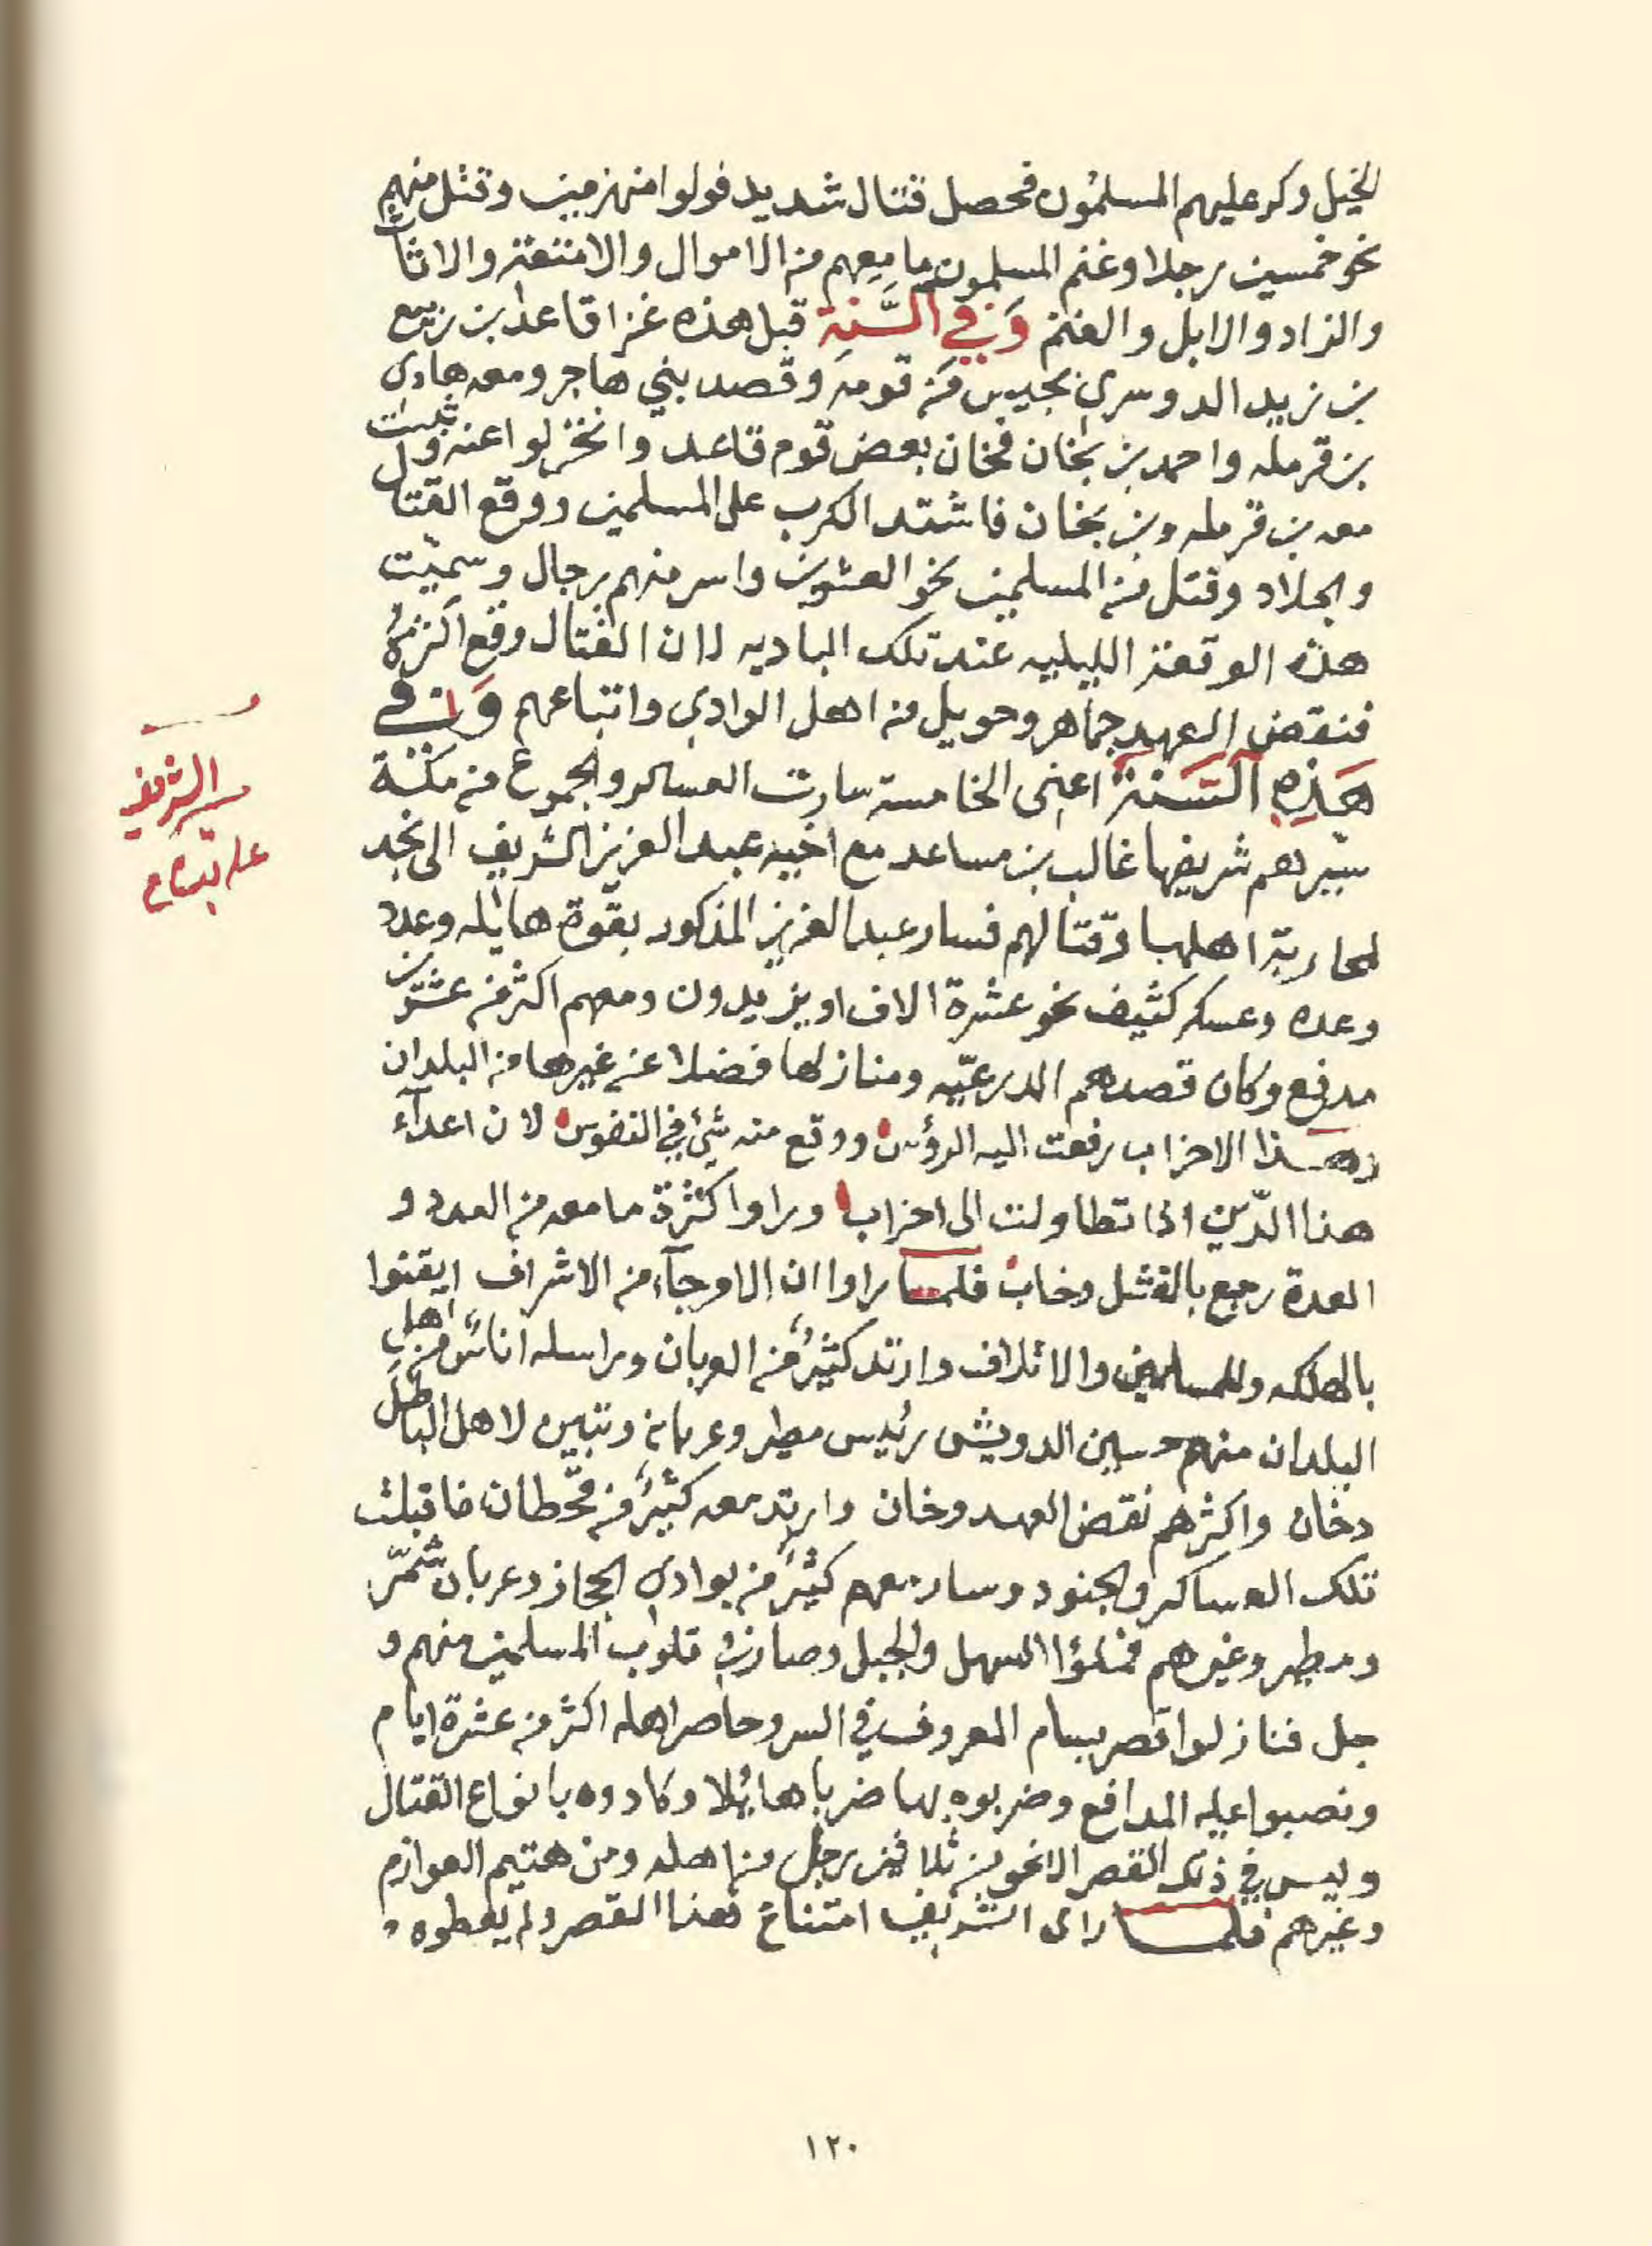 الخيل وكر عليهم المسلمون فحصل قتال شديد فولوا منهزمين وقتل منهم
نحو خمسين رجلا وغنم المسلمون ما معهم من الاموال والامتعة والاثاث
والزاد والابل والغنم وَفي السَّنة قبل هذه غزا قاعد بن ربيع
بن زيد الدوسري بجيش من قومه وقصد بني هاجر ومعه هادي
بن قرمله واحمد بن نجخان فخان بعض قوم قاعد وانخزلوا عنه وثبت
معه بن قرمله وبن نجخان فاشتد الكرب على المسلمين ووقع القتال
والجلاد وقتل من المسلمين نحو العشرين واسر منهم رجال وسميت
هذه الوقعة الليليه عند تلك الباديه لان القتال وقع اكثره
فنقض العهد جماهر وحويل من اهل الوادي واتباعهم وَفي
هَذِهِ السَّنَة اعني الخامسة سارت العساكر والجموع من مكة
سيرهم شريفها غالب بن مساعد مع اخيه عبد العزيز الشريف الى نجد
لمحاربة اهلها وقتالهم فسار عبد العزيز المذكور بقوة هايله وعدد
وعده وعسكر كثيف نحو عشرة الاف او يزيدون ومعهم اكثر من عشرين
مدفع وكان قصدهم الدرعيّه ومنازلها فضلا عن غيرها من البلدان
وهذا الاحزاب رفعت اليه الرؤس ووقع منه شيئ في النفوس لان اعدآء
هذا الدّين اذا تطاولت الى احزاب وراوا كثرة ما معه من العدد و
العدة رجع بالفشل وخاب فلما راوا ان الاوجآء من الاشراف ايقنوا
بالهلكه وللمسلمين والاتلاف وارتد كثيرٌ من العربان وراسله اناسٌ من اهل
البلدان منهم حسين الدويش رئيس مطير وعربانه وتبين لاهل الباطل
دخان واكثرهم نقض العهد وخان وارتد معه كثيرٌ من قحطان فاقبلت
تلك العساكر والجنود وسار معهم كثيرٌ من بوادي الحجاز وعربان شمّر
ومطير وغيرهم فملؤا السهل والجبل وصار في قلوب المسلمين منهم و
جل فنازلوا قصر بسام المعروف في السر وحاصر اهله اكثر من عشرة ايام
ونصبوا عليه المدافع وضربوه بها ضربا هائلا وكادوه بانواع القتال
وليس في ذلك القصر الا نحو من ثلاثين رجل من اهله ومن هتيم العوازم
وغيرهم فلما راى الشريف امتناع هذا القصر ولم يعطوه
مسير الشريف
على بسام
١٢٠